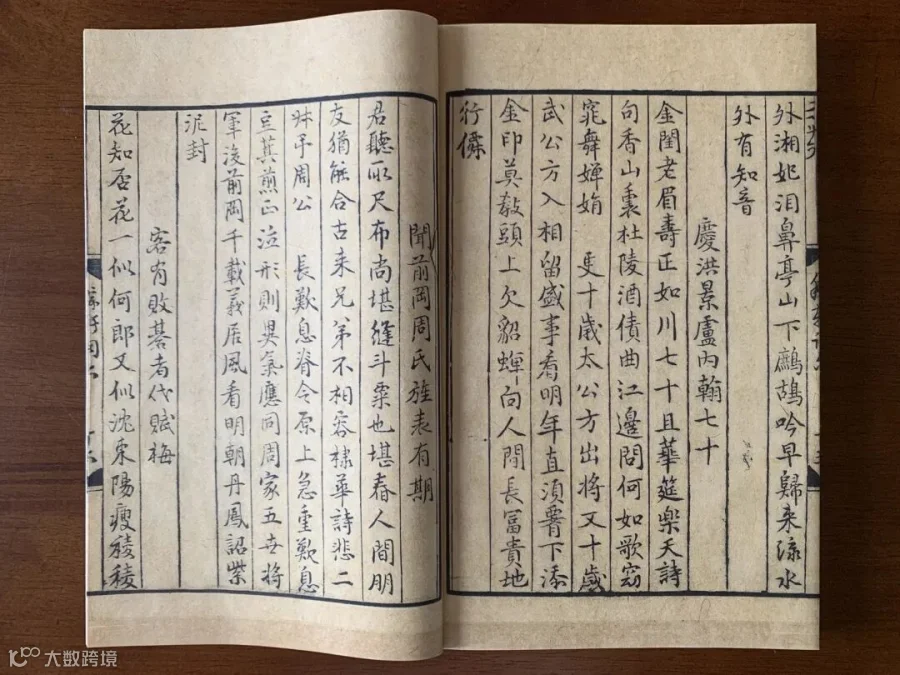 外湘妃泪鼻亭山下鷓鴣吟早歸来流水
外有知音
慶洪景盧内翰七十
金閨老眉壽正如川七十且華筵樂天詩
句香山裏杜陵酒債曲江邊問何如歌窈
窕舞嬋娟 更十歲太公方出將又十歲
武公方入相留盛事看明年直須腰下添
金印莫教頭上欠貂蟬向人間長富貴地
行僊
聞前岡周氏旌表有期
君聽取尺布尚堪縫斗粟也堪舂人間朋
友猶能合古来兄弟不相容棣華詩悲二
叔弔周公 長歎息脊令原上急重歎息
豆萁煎正泣形則異氣應同周家五世將
軍後前岡千載義居風看明朝丹鳳詔紫
泥封
客有敗棊者代賦梅
花知否花一似何郎又似沈東陽瘦稜稜
大数跨境